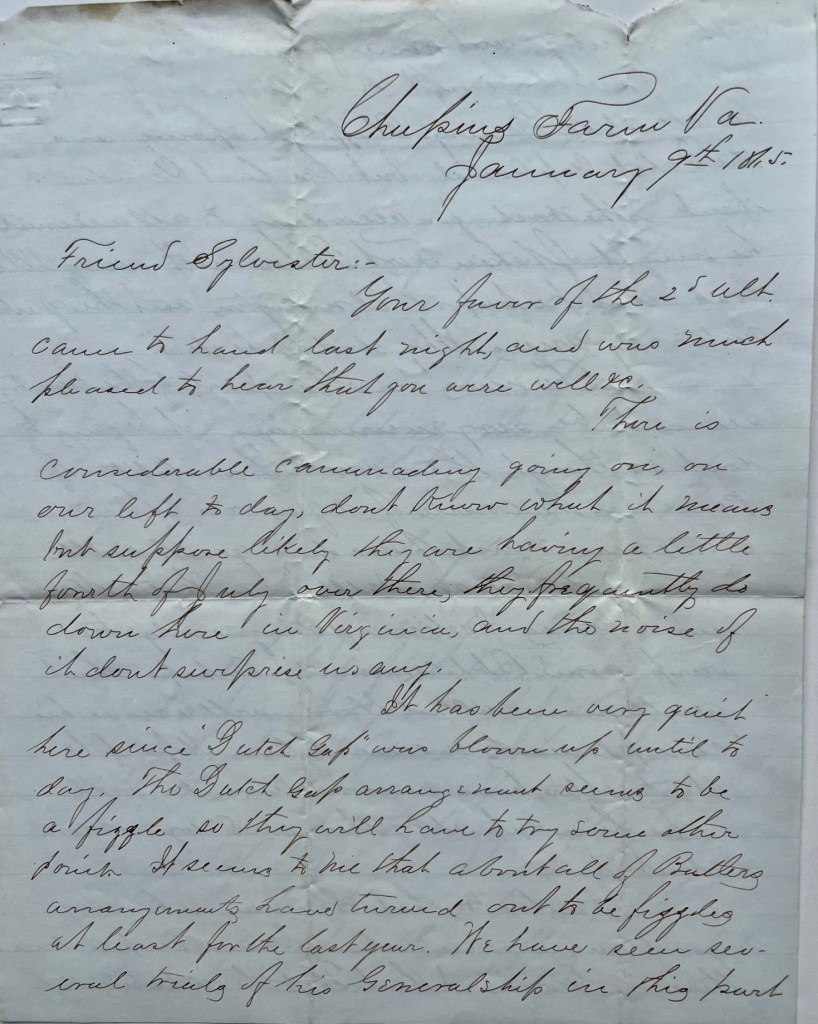 Chupins Farm Va.
January 9th 1865.
Friend Sylvester:-
Your favor of the 2d ult.
came to hand last night, and was much
pleased to hear that you were well &c.
There is
considerable cannonading going on, on
our left to day, dont know what it means
but suppose likely they are having a little
fourth of July over there, they frequently do
down here in Virginia, and the noise of
it dont surprise us any.
It has been very quiet
here since "Dutch Gap" was blown up until to
day. The Dutch Gap arrangement seems to be
a figgle so they will have to try some other
point. It seems to me that about all of Butlers
arrangements have turned out to be figgles
at least for the last year. We have seen sev-
eral trials of his Generalship in this part